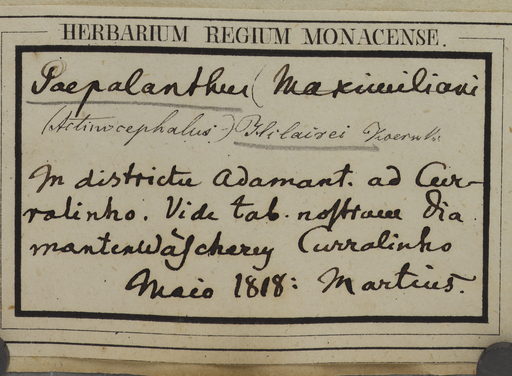 HERBARIUM REGIUM MONACENSE.
Paepalanthus (Maximiliani
(Actinocephalus.) Hilairei Koernk.
In districtu Adamant. ad Cur-
ralinho. Vide tab. nostram Dia
mantenwäscherey Curralinho
Maio 1818: Martius.